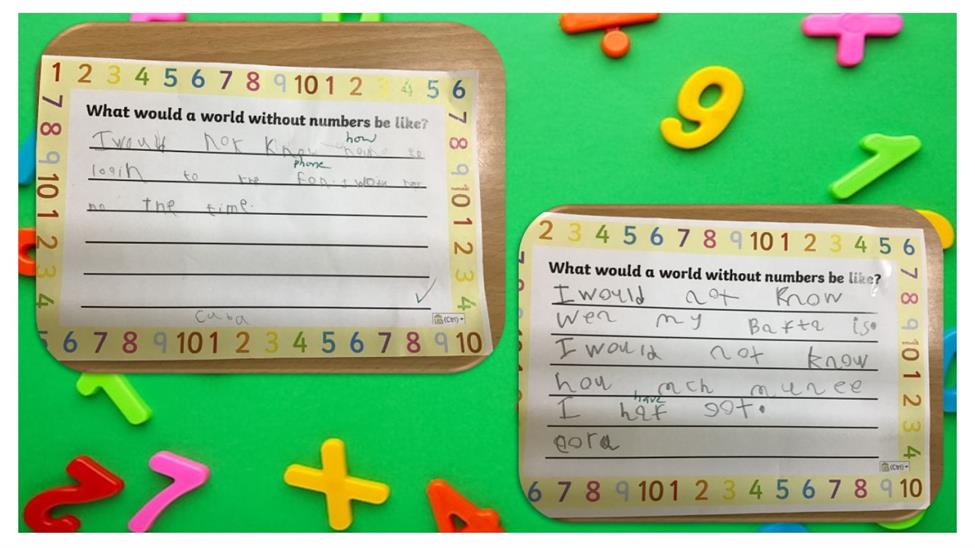 1 2 3 4 5 6 7 8 9 10 1 2 3 4 5 6
7 8 9 10 1 2 3 4
7 8 9 10 1 2 3 4
What would a world without numbers be like?
I would not know how to
login to the phone fon. I would not
no the time.
caba
(Ctrl)
5 6 7 8 9 10 1 2 3 4 5 6 7 8 9 10
2 3 4 5 6 7 8 9 10 1 2 3 4 5 6
7 8 9 10 1 2 3 4
What would a world without numbers be like?
I would not know
wen my Bafta is.
I would not know
hou mch munee
have
I haf got.
cora
(Ctrl)
6 7 8 9 10 1 2 3 4 5 6 7 8 9 10
9
1
1
2
7
4